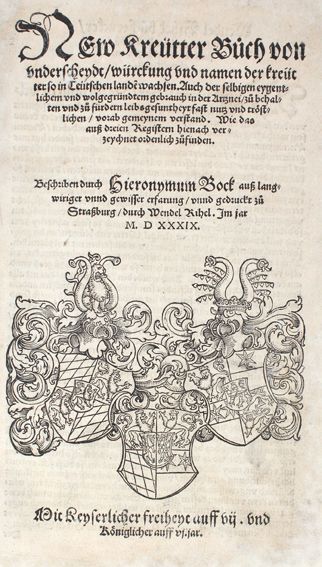 New Kreütter Bůch von
vnderscheydt/ würckung vnd namen der kreüt
ter so in Teütschen landē wachsen. Auch der selbigen eygent-
lichem vnd wolgegründtem gebrauch in der Artznei/ zů behal-
ten vnd zů fürdern leibs gesuntheyt fast nutz vnd tröst-
lichen/ vorab gemeynem verstand. Wie das
auß dreien Registern hienach ver-
zeychnet ordenlich zůfinden.
Beschriben durch Hieronymum Bock auß lang-
wiriger vnnd gewisser erfarung/ vnnd gedruckt zů
Straßburg/ durch Wendel Rihel. Im jar
M. D XXXIX.
Mit Keyserlicher freiheyt auff vij. vnd
Königlicher auff vj. jar.